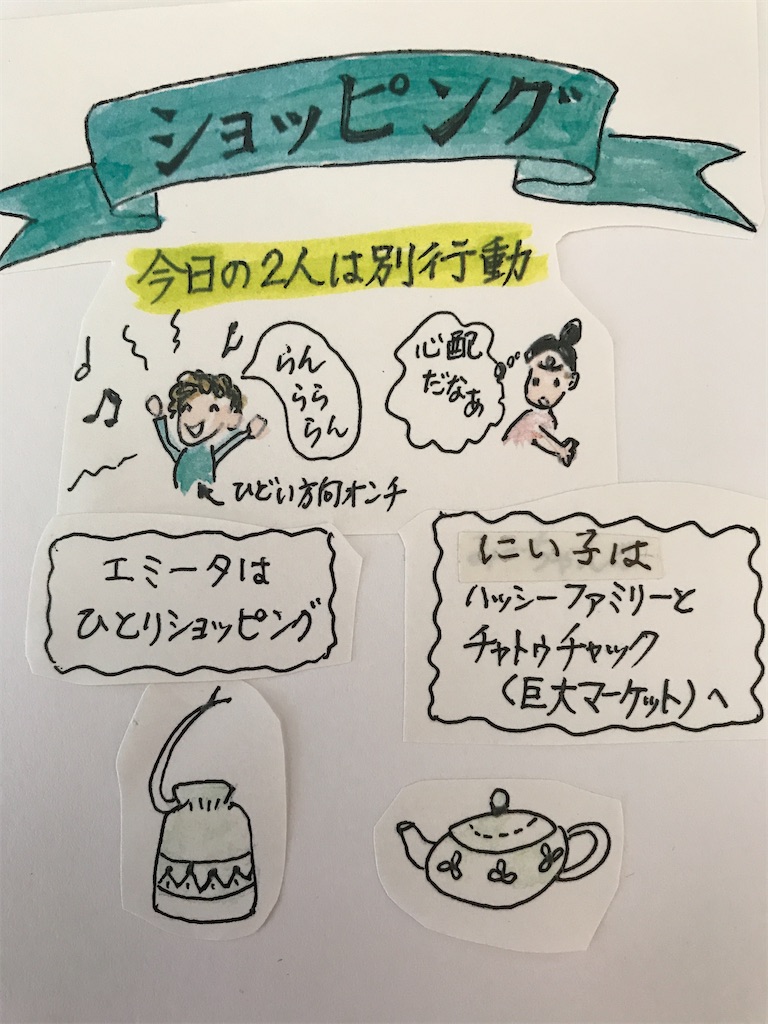 ショッピング
今日の2人は別行動
らん
らら
らん
心配
だなぁ
ひどい方向オンチ
エミータは
ひとりショッピング
にい子は
ハッシーファミリーと
チャトゥチャック
(巨大マーケット)へ